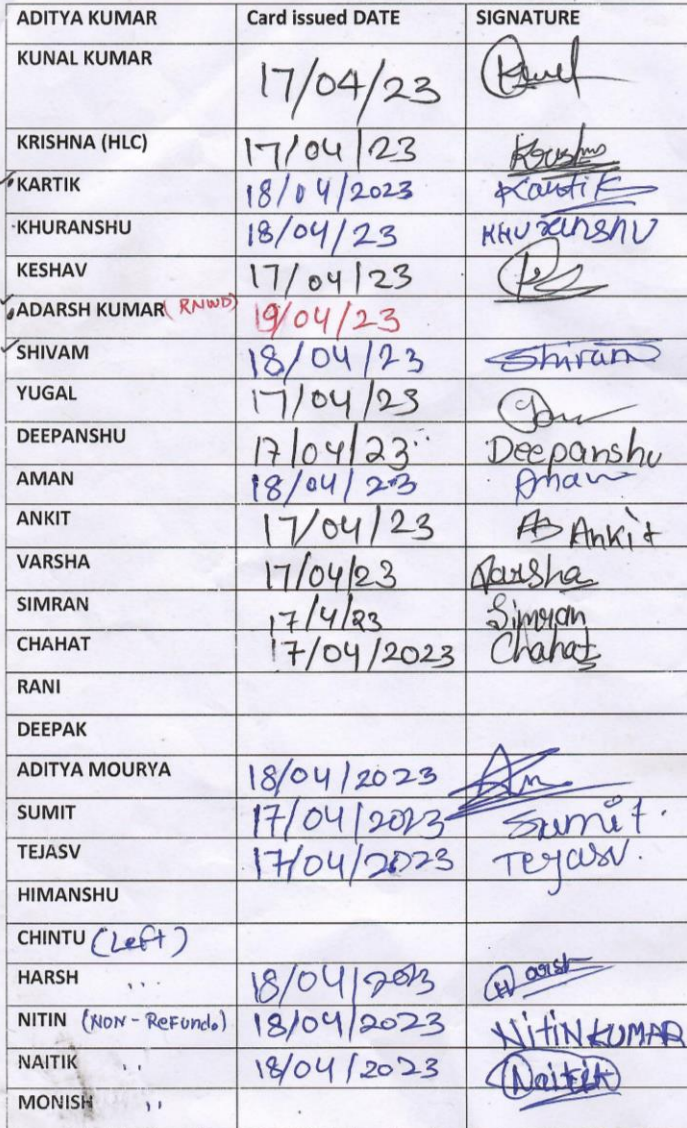 ADITYA KUMAR Card issued DATE SIGNATURE
KUNAL KUMAR 17/04/23
KRISHNA (HLC) 17/04/23 Krishna
KARTIK 18/04/2023 Kartik
KHURANSHU 18/04/23 KHURANSHU
KESHAV 17/04/23
ADARSH KUMAR (RNWD) 19/04/23
SHIVAM 18/04/23 Shivam
YUGAL 17/04/23
DEEPANSHU 17/04/23 Deepanshu
AMAN 18/04/23 Aman
ANKIT 17/04/23 Ankit
VARSHA 17/04/23 Varsha
SIMRAN 17/4/23 Simran
CHAHAT 17/04/2023 Chahat
RANI
DEEPAK
ADITYA MOURYA 18/04/2023
SUMIT 17/04/2023 Sumit.
TEJASV 17/04/2023 Tejasv.
HIMANSHU
CHINTU (Left)
HARSH ,, 18/04/2023 Harsh
NITIN (NON-Refund.) 18/04/2023 NitiN KUMAR
NAITIK ,, 18/04/2023 Naitik
MONISH ,,